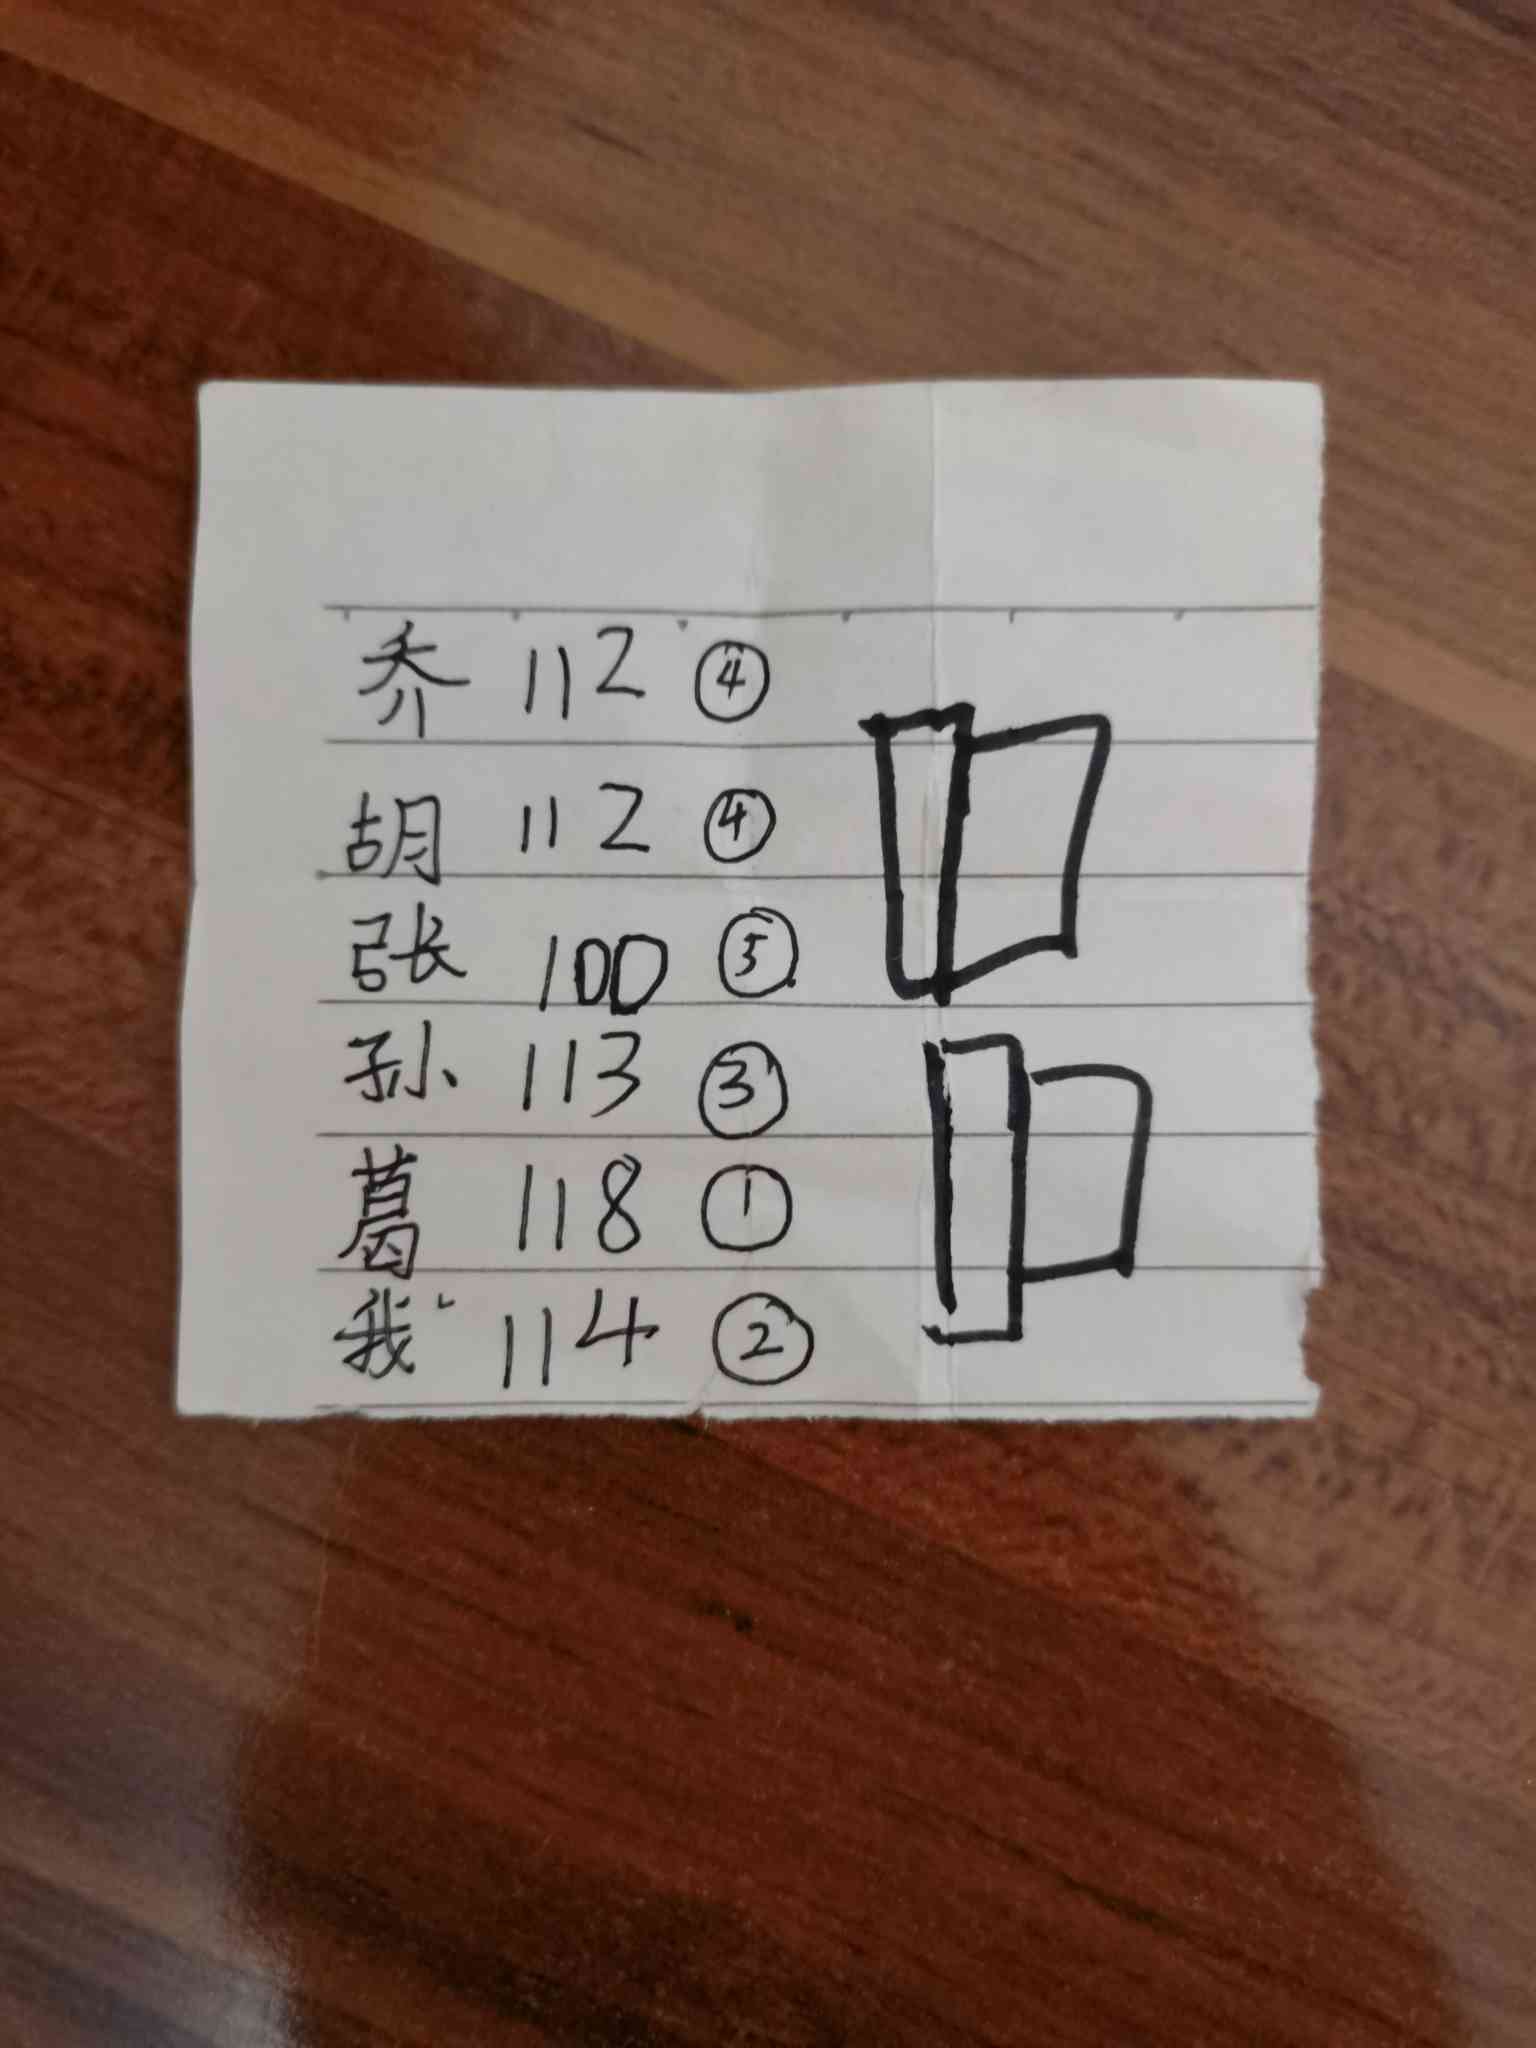 乔 112 ④
胡 112 ④
张 100 ⑤
孙 113 ③
葛 118 ①
我 114 ②